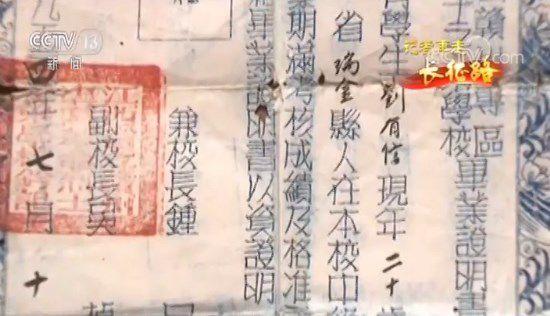 CCTV 13
新闻
记者再走
长征路
區
學校畢業證明書
學生劉百信現年二十
省瑞金縣人在本校中
期滿考核成績及格准
畢業證明書以資證明
兼校長鍾
副校長吳
四年七月十